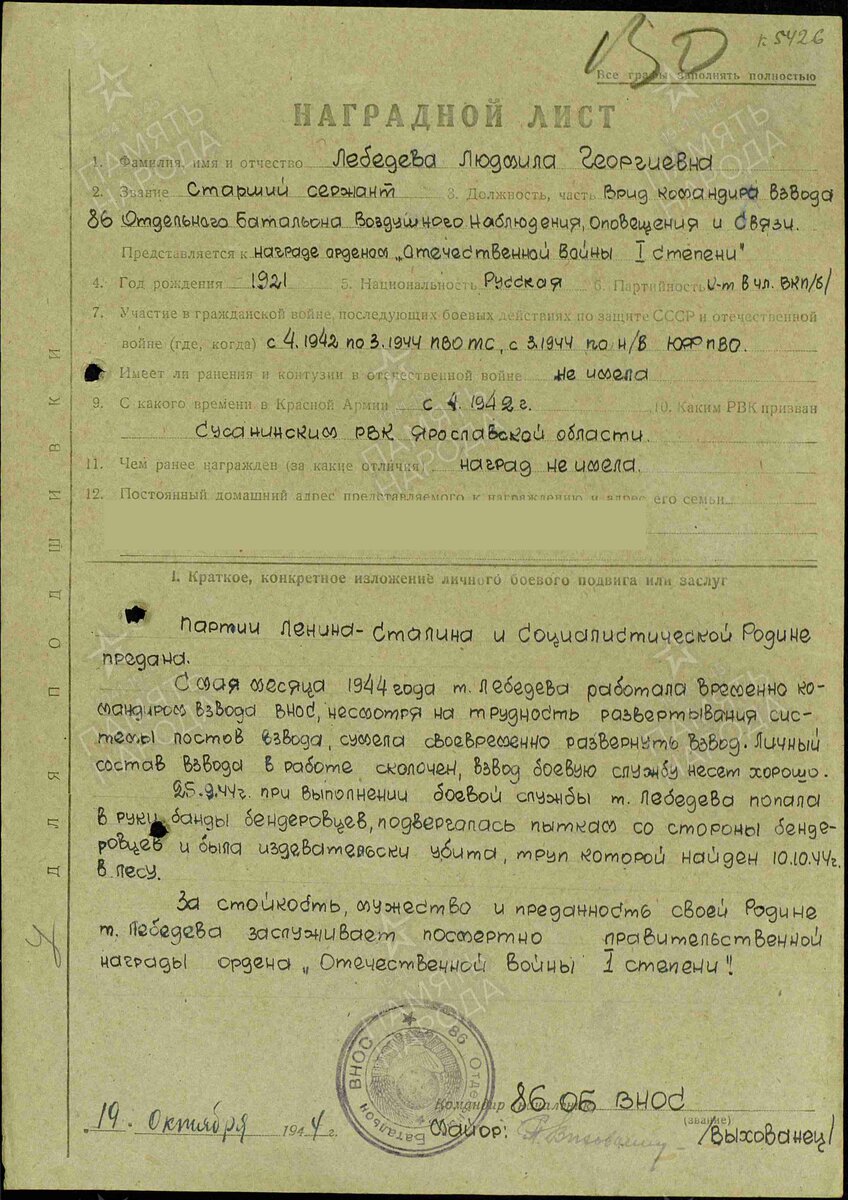 ВО
к 5426
Все графы заполнять полностью
НАГРАДНОЙ ЛИСТ
1. Фамилия, имя и отчество Лебедева Людмила Георгиевна
2. Звание Старший сержант 3. Должность, часть Врид командира взвода
86 Отдельного Батальона Воздушного Наблюдения, Оповещения и Связи.
Представляется к награде орденом „Отечественной войны I степени"
4. Год рождения 1921 5. Национальность Русская 6. Партийность к-т в чл. ВКП/б/
7. Участие в гражданской войне, последующих боевых действиях по защите СССР и отечественной
войне (где, когда) с 4.1942 по 3.1944 ПВО ТС, с 3.1944 по н/в ЮФ ПВО.
Имеет ли ранения и контузии в отечественной войне не имела
9. С какого времени в Красной Армии с 4. 1942 г. 10. Каким РВК призван
Сусанинским РВК Ярославской области.
11. Чем ранее награжден (за какие отличия) наград не имела.
12. Постоянный домашний адрес представляемого к награждению и адрес его семьи
I. Краткое, конкретное изложение личного боевого подвига или заслуг
Партии Ленина-Сталина и Социалистической Родине
предана.
С мая месяца 1944 года т. Лебедева работала временно ко-
мандиром взвода ВНОС, несмотря на трудность развертывания сис-
темы постов взвода, сумела своевременно развернуть взвод. Личный
состав взвода в работе сколочен, взвод боевую службу несет хорошо.
25.9.44г. при выполнении боевой службы т. Лебедева попала
в руки банды бендеровцев, подвергалась пыткам со стороны бенде-
ровцев и была издевательски убита, труп которой найден 10.10.44г.
в лесу.
За стойкость, мужество и преданность своей Родине
т. Лебедева заслуживает посмертно правительственной
награды ордена „Отечественной войны I степени"!
86 Отдел
Батальон ВНОС
Командир 86 ОБ ВНОС
(звание)
"19. Октября 1944 г.
Майор: /Выхованец/
ДЛЯ ПОДШИВКИ
ПАМЯТЬ НАРОДА